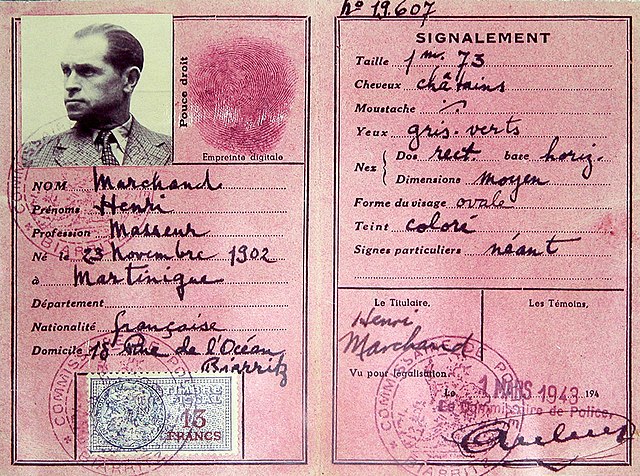 Pouce droit
Empreinte digitale
NOM Marchand
Prénoms Henri
Profession Masseur
Né le 23 Novembre 1902
à Martinique
Département
Nationalité française
Domicile 18 Rue de l'Océan
Biarritz
TIMBRE FISCAL
13
FRANCS
COMMISSARIAT DE POLICE
BIARRITZ
No 19.607
SIGNALEMENT
Taille 1m. 73
Cheveux châtains
Moustache
Yeux gris-verts
Nez { Dos rect. base horiz.
Dimensions moyen
Forme du visage ovale
Teint coloré
Signes particuliers néant
Le Titulaire, Les Témoins,
Henri
Marchand
Vu pour légalisation
Le 1 MARS 1943 194
Le Commissaire de Police,